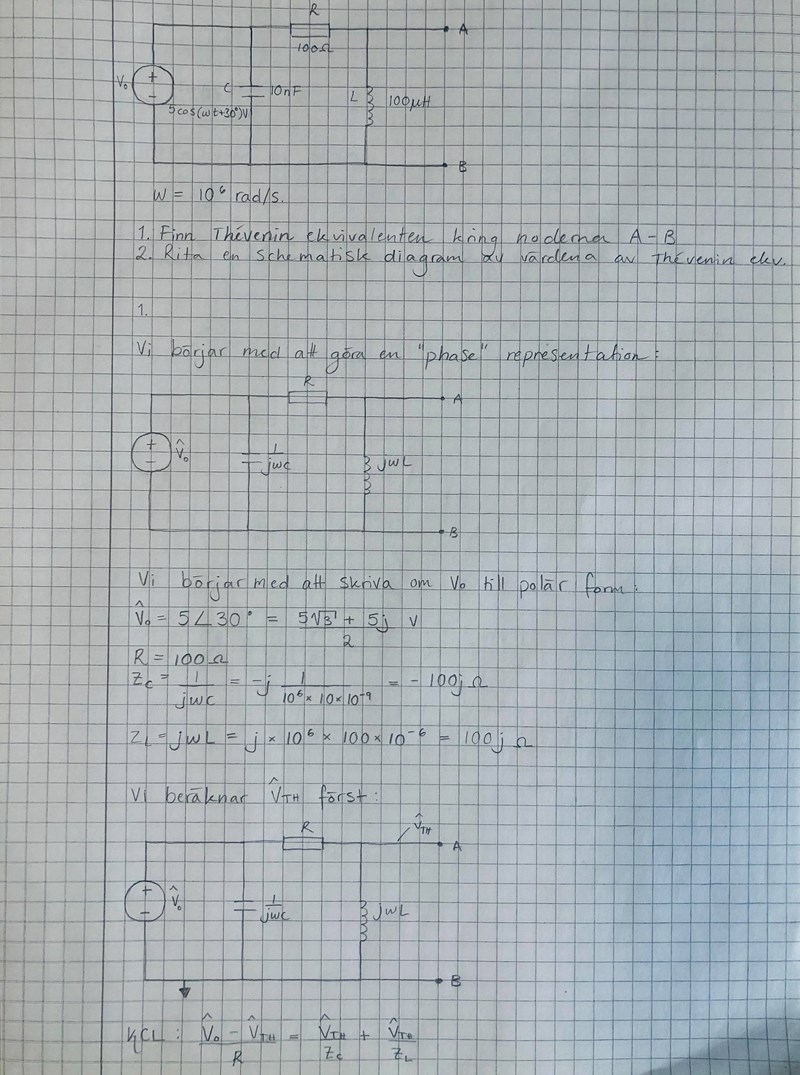 R
100Ω
A
V₀
+
−
C
10nF
L
100μH
5cos(ωt+30°)V
B
W = 10⁶ rad/s.
1. Finn Thévenin ekvivalenten kring noderna A-B
2. Rita en schematisk diagram av värdena av Thévenin ekv.
1.
Vi börjar med att göra en "phase" representation:
R
A
+
−
V̂₀
1/jωC
jωL
B
Vi börjar med att skriva om V₀ till polär form:
V̂₀ = 5∠30° = (5√3 + 5j)/2 V
R = 100Ω
Zc = 1/jωC = -j 1/(10⁶ × 10 × 10⁻⁹) = -100j Ω
ZL = jωL = j × 10⁶ × 100 × 10⁻⁶ = 100j Ω
Vi beräknar V̂TH först:
R
V̂TH
A
+
−
V̂₀
1/jωC
jωL
B
KCL: (V̂₀ - V̂TH)/R = V̂TH/Zc + V̂TH/ZL